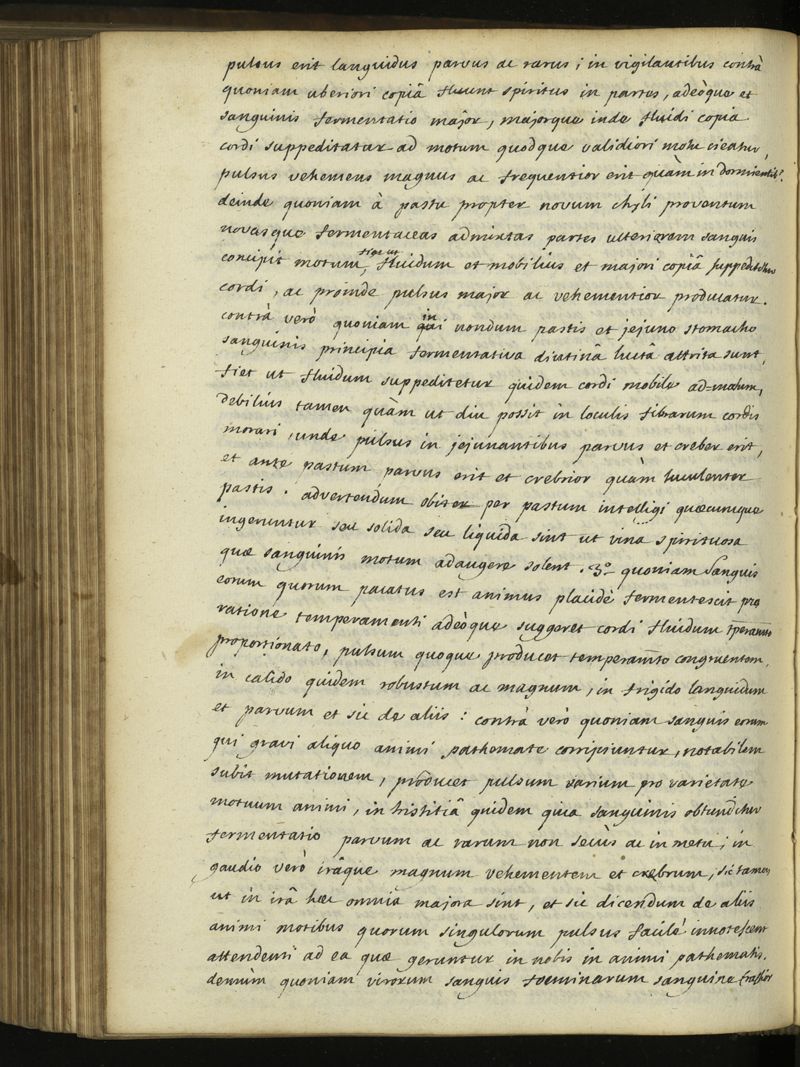 pulsus erit languidus parvus ac rarus; in vigilantibus contrà
quoniam uberiori copiâ fluunt spiritus in partes, adeòque et
sanguinis fermentatio major, majorque inde fluidi copia
cordi suppeditatur ad motum quodque validiori motu cieatur,
pulsus vehemens magnus ac frequentior erit quàm in dormientib9.
deinde quoniam à pastu propter novum chyli proventum
novasque fermentaceas admixtas partes ulteriorem sanguis
concipit motum, fiet ut fluidum et mobilius et majori copiâ suppeditetur
cordi, ac proinde pulsus major ac vehementior producatur.
contrà verò quoniam in nondum pastis et jejuno stomacho
sanguinis principia fermentativa diutinâ luctâ attrita sunt,
fiet ut fluidum suppeditetur quidem cordi mobile ad motum,
debilius tamen quàm ut diu possit in loculis fibrarum cordis
morari, unde pulsus in jejunantibus parvus et creber erit,
et ante pastum parvus erit et crebrior quàm luculenter
pastis. advertendum obiter per pastum intelligi quæcumque
ingeruntur seu solida seu liquida sint ut vina spirituosa
quæ sanguinis motum adaugere solent. 3º quoniam sanguis
eorum quorum pacatus est animus placidè fermentescit pro
ratione temperamenti adeòque suggeret cordi fluidum tperamto
proportionato, pulsum quoque producet temperamto congruentem,
in calido quidem robustum ac magnum, in frigido languidum
et parvum et sic de aliis: contrà verò quoniam sanguis eorum
qui gravi aliquo animi pathemate corripiuntur, notabilem
subit mutationem, producet pulsum varium pro varietate
motuum animi, in tristitiâ quidem quia sanguinis obtunditur
fermentatio parvum ac rarum non secùs ac in metu; in
gaudio verò irâque magnum vehementem et crebrum, sic tamen
ut in irâ hæc omnia majora sint, et sic dicendum de aliis
animi motibus quorum singulorum pulsus facilè innotescent
attendenti ad ea quæ geruntur in nobis in animi pathematis.
demùm quoniam virorum sanguis foeminarum sanguine crassior